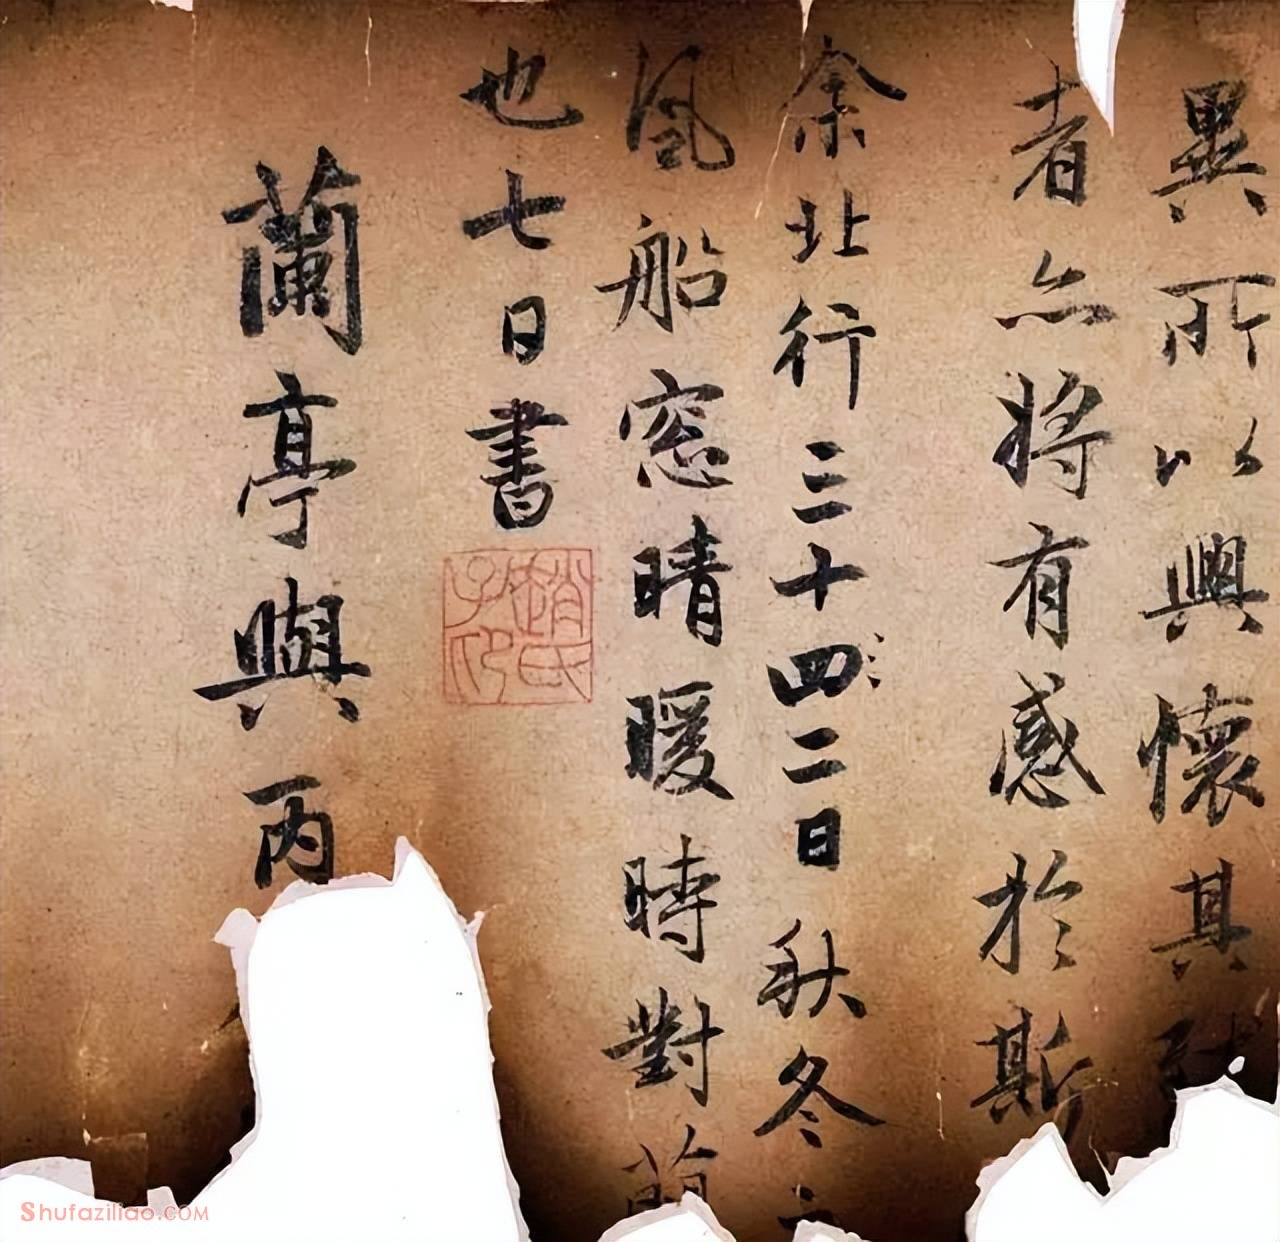 異所以興懷其致
者亦將有感於斯
余北行三十二日秋冬之
四
風船窓晴暖時對蘭
也七日書
趙氏子印
蘭亭與丙
Shufaziliao.COM